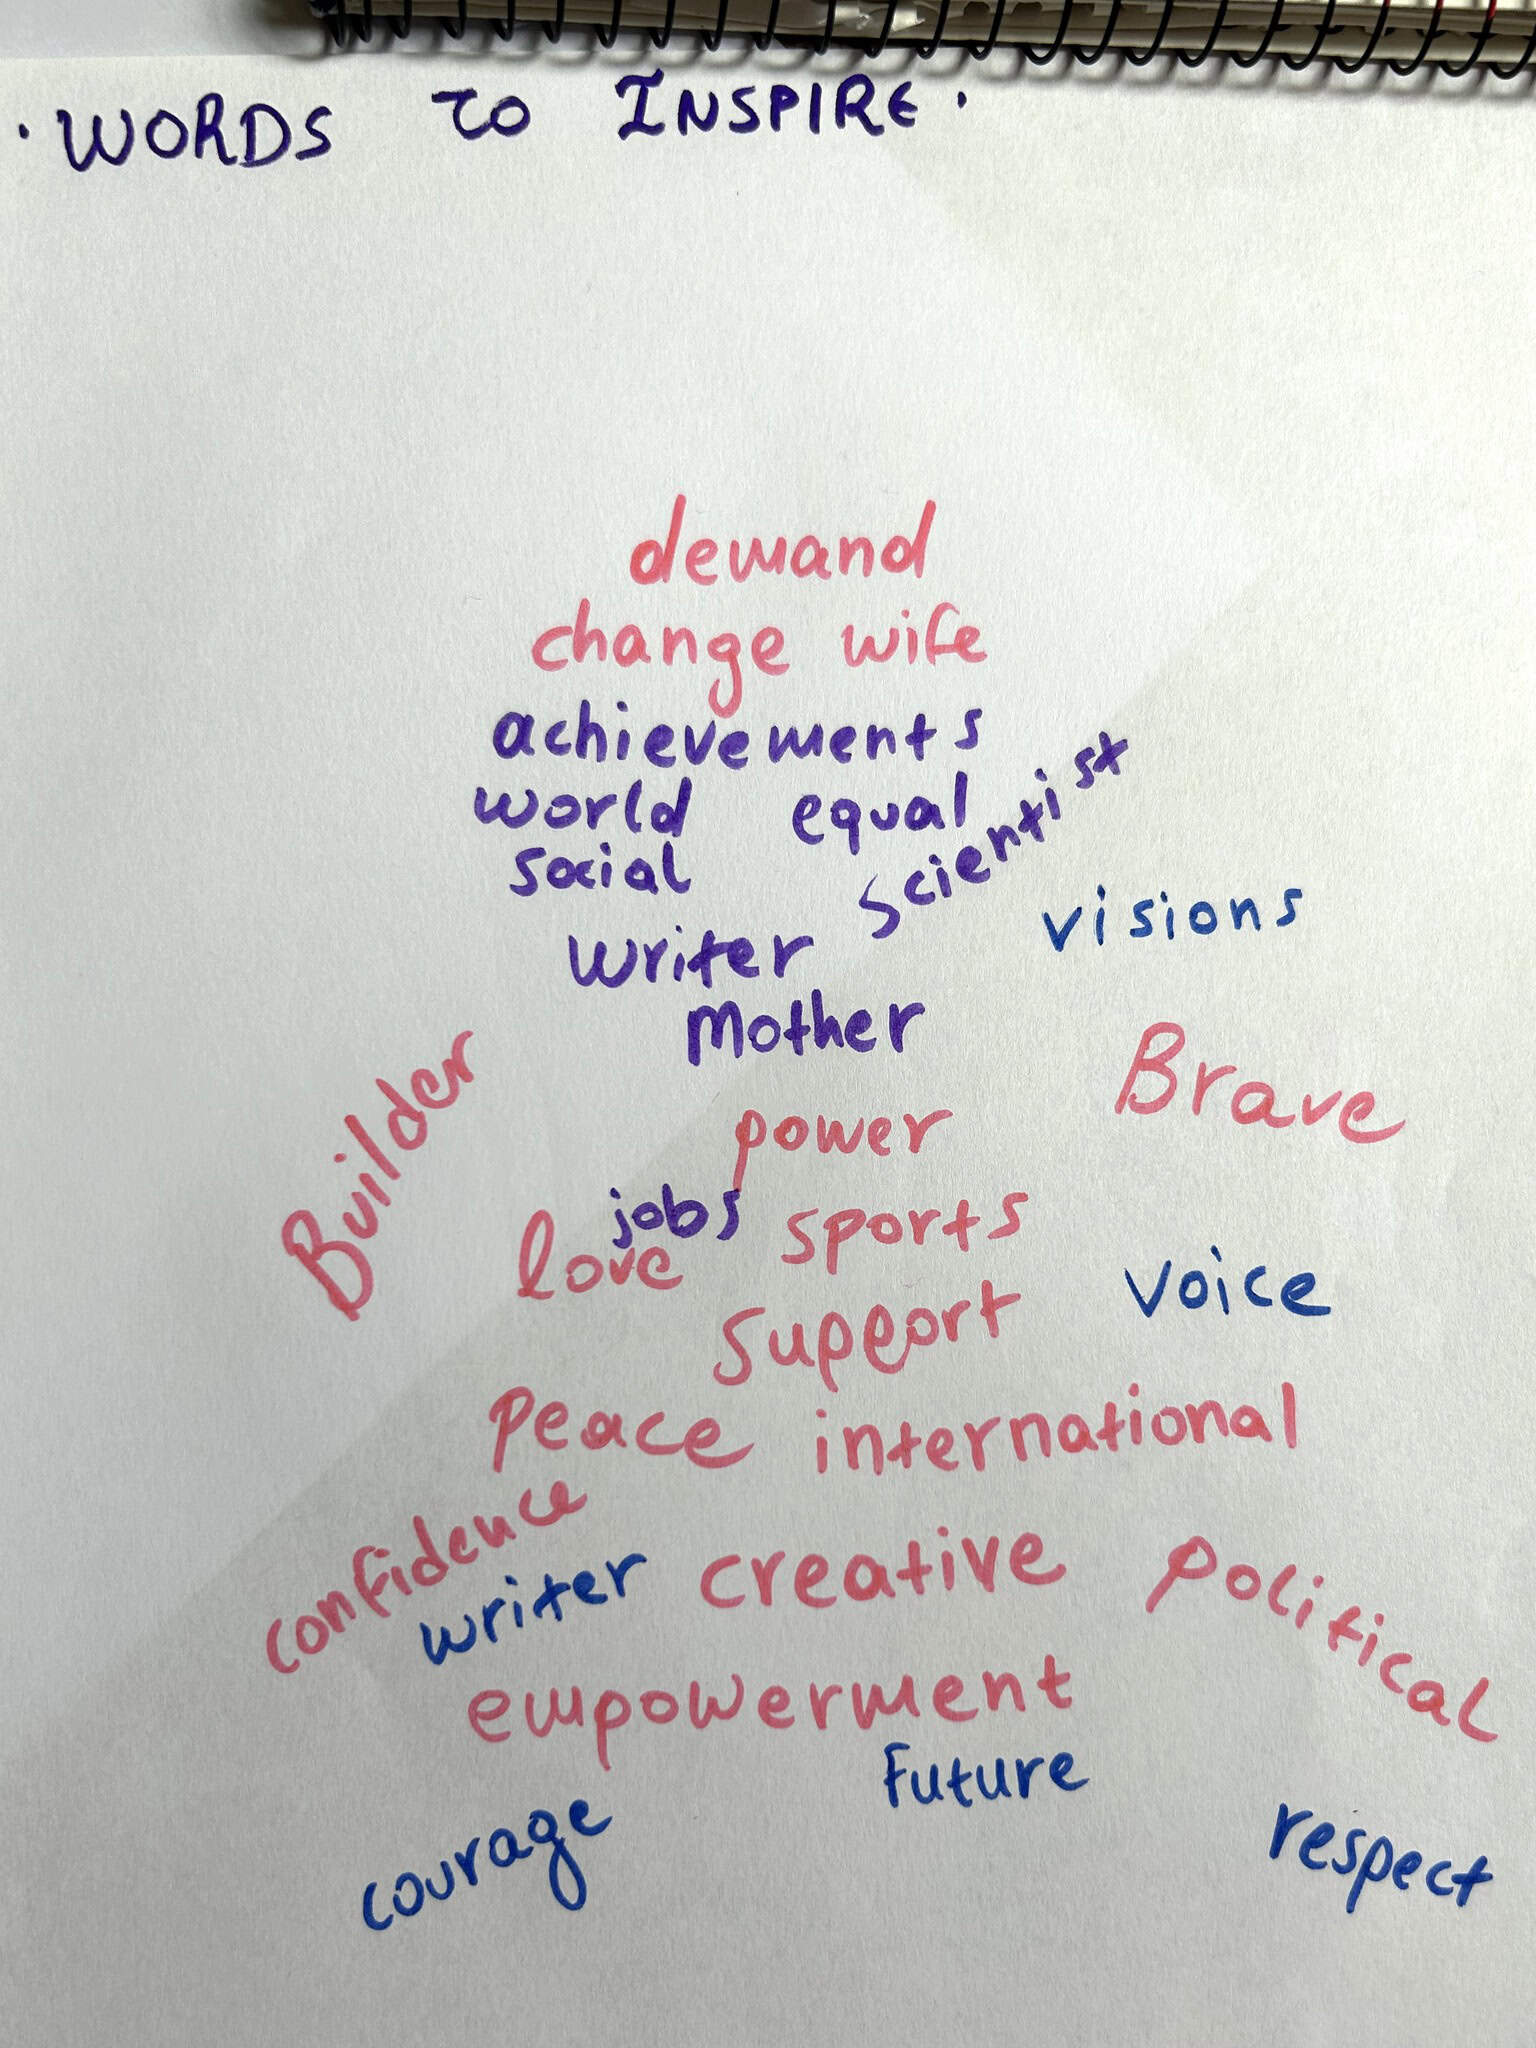 · WORDS TO INSPIRE ·
demand
change wife
achievements
world equal
scientist
social
visions
writer
Mother
Builder
Brave
power
jobs
love sports
voice
support
Peace international
confidence
writer creative political
empowerment
Future
courage
respect